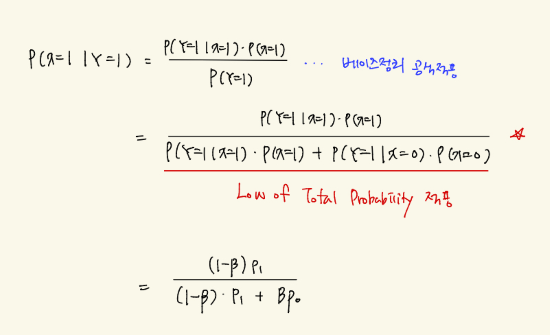 P(x=1 | Y=1) = P(Y=1 | x=1) · P(x=1) / P(Y=1) ... 베이즈정리 공식적용
= P(Y=1 | x=1) · P(x=1) / P(Y=1 | x=1) · P(x=1) + P(Y=1 | x=0) · P(x=0) ☆
Low of Total Probability 적용
= (1-β) P₁ / (1-β) · P₁ + βp₀